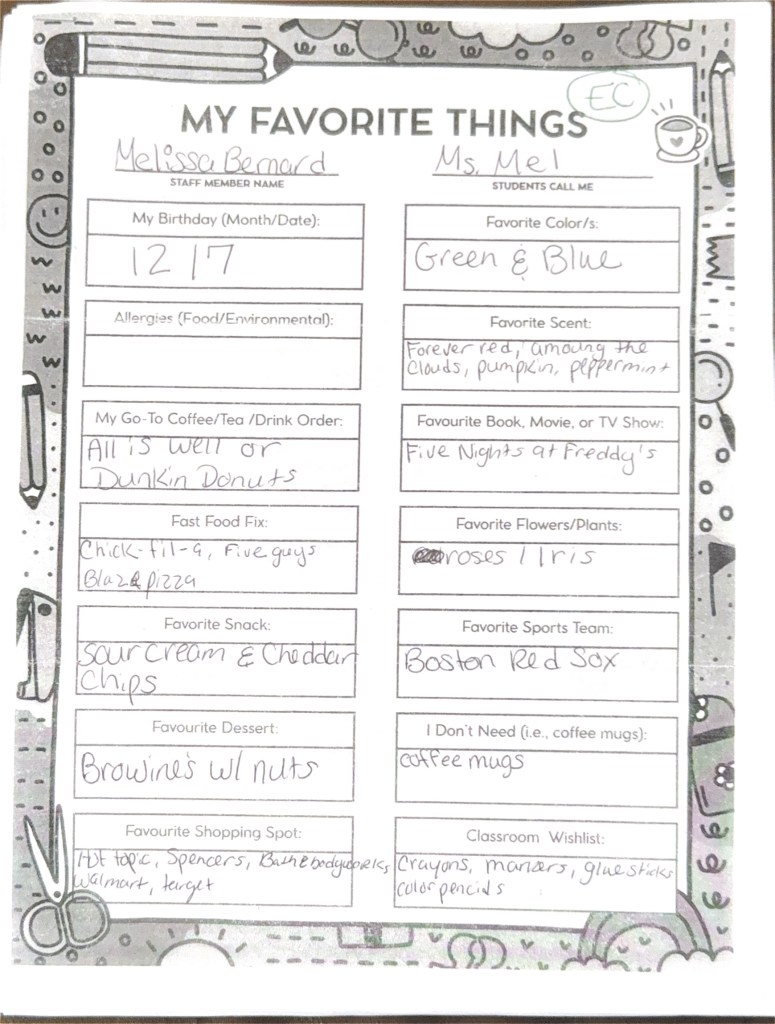 EC
MY FAVORITE THINGS
Melissa Bernard
STAFF MEMBER NAME
Ms. Mel
STUDENTS CALL ME
My Birthday (Month/Date):
12 17
Favorite Color/s:
Green & Blue
Allergies (Food/Environmental):
Favorite Scent:
Forever red, amoung the
Clouds, pumpkin, peppermint
My Go-To Coffee/Tea /Drink Order:
All is well or
Dunkin Donuts
Favourite Book, Movie, or TV Show:
Five Nights at Freddy's
Fast Food Fix:
Chick-fil-a, Five guys
Blaze pizza
Favorite Flowers/Plants:
roses / Iris
Favorite Snack:
Sour Cream & Cheddar
Chips
Favorite Sports Team:
Boston Red Sox
Favourite Dessert:
Browine's w/ nuts
I Don't Need (i.e., coffee mugs):
coffee mugs
Favourite Shopping Spot:
Hot topic, Spencers, Bath & bodyworks,
Walmart, target
Classroom Wishlist:
Crayons, markers, glue sticks
color pencils